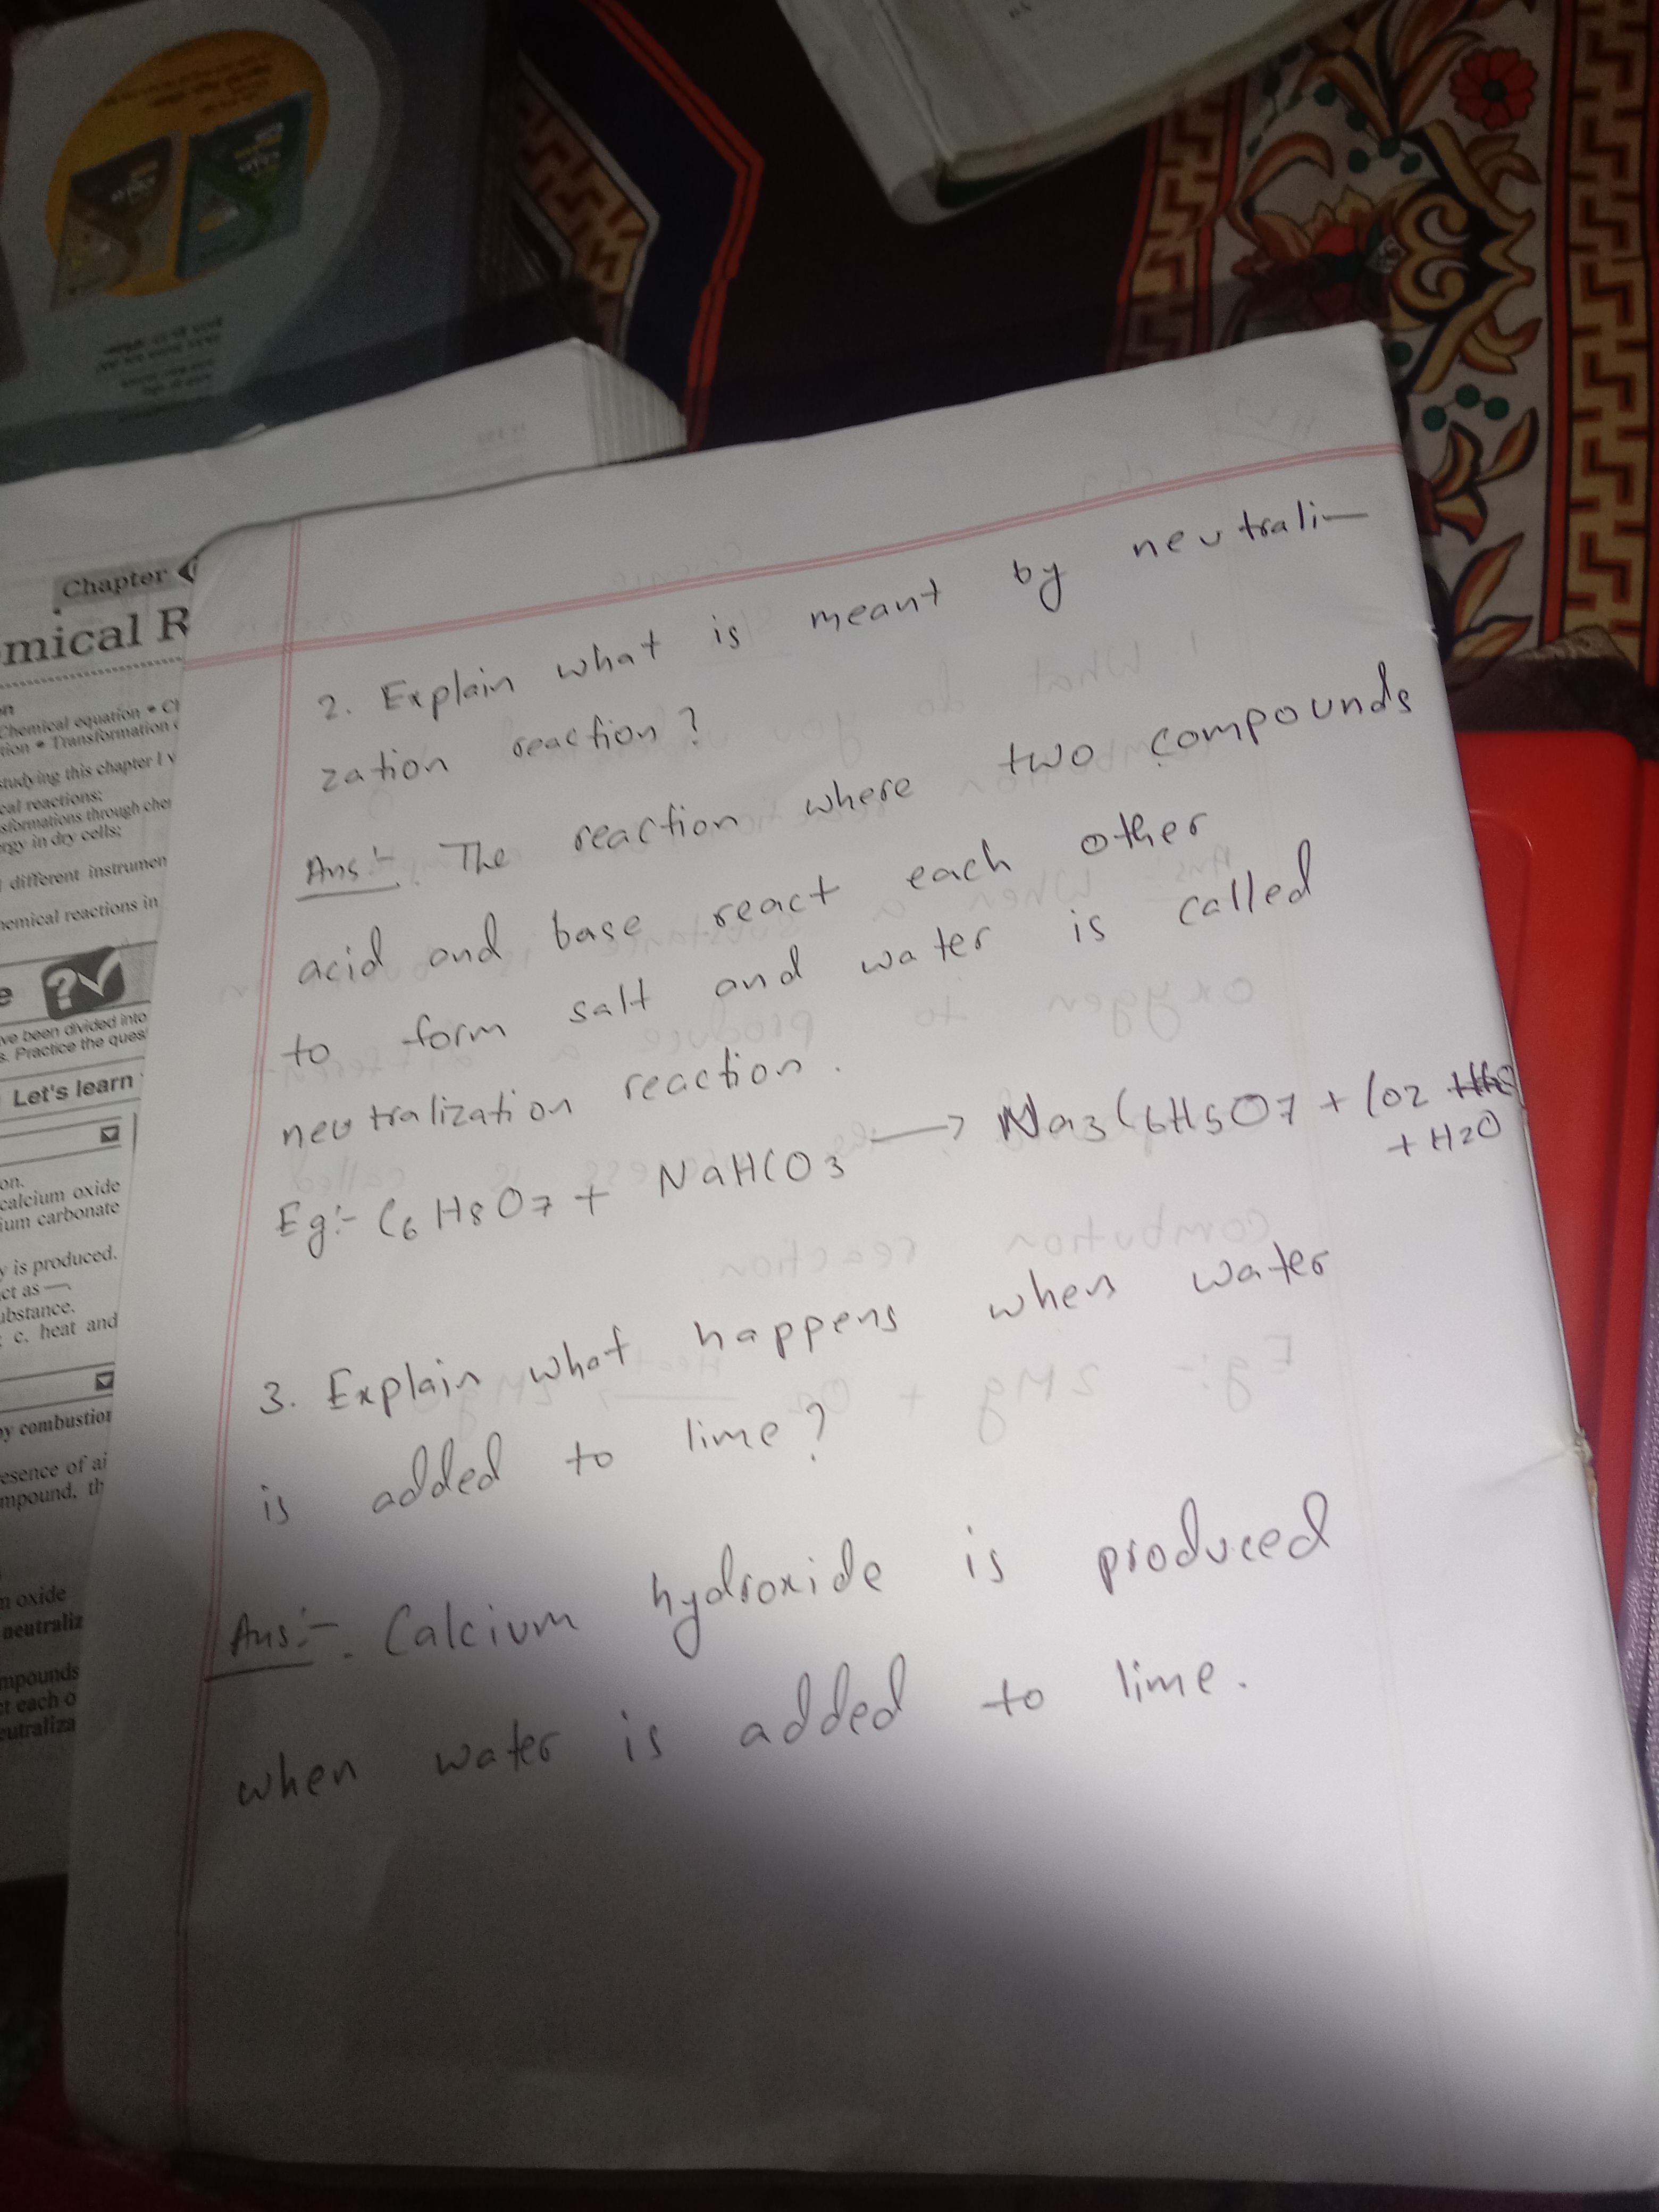 Chapter
mical R
Chemical equation • Cl
tion • Transformation
studying this chapter I
cal reactions;
sformations through
ergy in dry cells;
different instrumen
hemical reactions in
e
ve been divided into
s. Practice the ques
Let's learn
on.
calcium oxide
ium carbonate
y is produced.
ct as —
ubstance.
c. heat and
by combustion
esence of ai
mpound, th
n oxide
neutraliz
mpounds
ct each o
eutraliza
2. Explain what is meant by neutrali-
zation reaction?
Ans:- The reaction where two compounds
acid and base react each other
to form salt and water is called
neutralization reaction.
Eg:- C6H8O7 + NaHCO3 → Na3C6H5O7 + CO2
+ H2O
3. Explain what happens when water
is added to lime?
Ans:- Calcium hydroxide is produced
when water is added to lime.